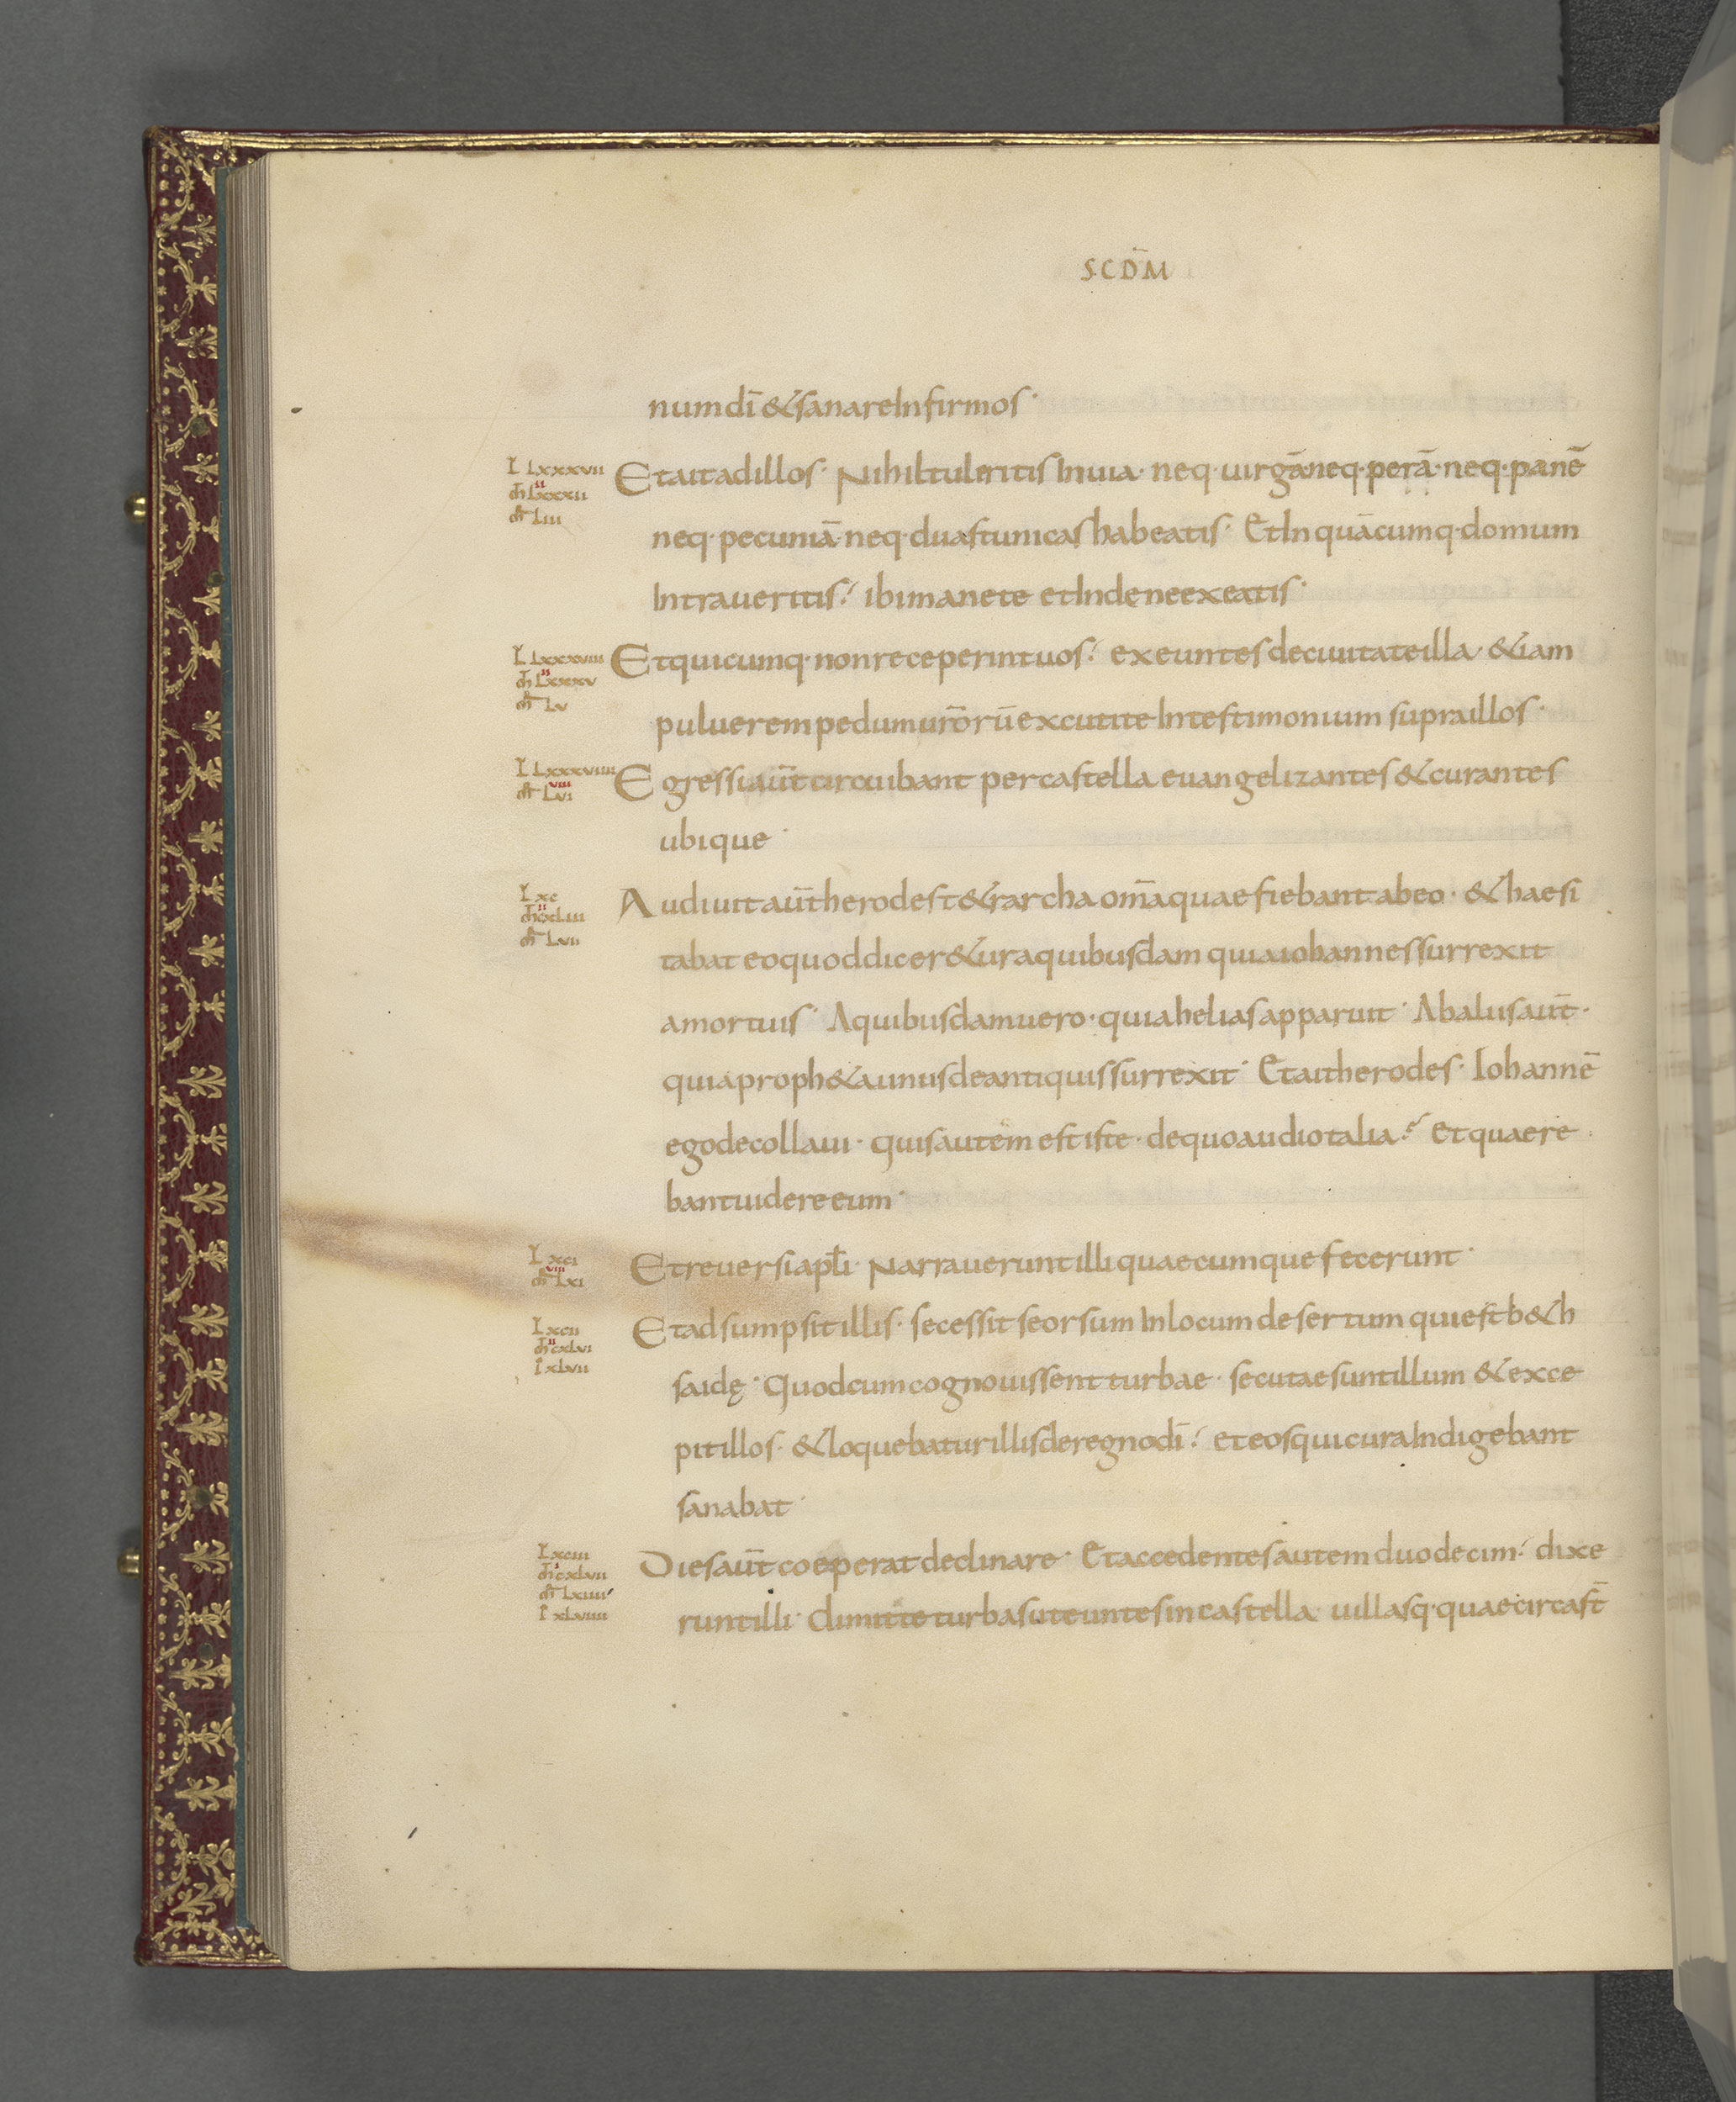 SCD̄M
num dī & sanare Infirmos·
L LXXXVII
M̄ LXXXII
II
MR LIII
Et ait ad illos· Nihil tuleritis In uia· neq· uirgā· neq· perā· neq· panē
neq· pecuniā· neq· duas tunicas habeatis· Et In quācumq· domum
Intraueritis: ibi manete et Inde ne exeatis·
L LXXXVIII
M̄ LXXXV
II
MR LV
Et quicumq· non receperint uos: exeuntes de ciuitate illa· & iam
puluerem pedum urōrū excutite In testimonium supra illos·
L LXXXVIIII
VIII
MR LVI
Egressi aūt circuibant per castella euangelizantes & curantes
ubique·
L XC
II
M̄ CXLIII
MR LVII
Audiuit aūt herodes t&rarcha om̄a quae fiebant ab eo· & haesi
tabat eo quod dicer&ur a quibusdam quia iohannes surrexit
a mortuis· A quibusdam uero· quia helias apparuit· Ab aliis aūt·
quia proph&a unus de antiquis surrexit· Et ait herodes· Iohannē
ego decollaui· quis autem est iste· de quo audio talia? Et quaere
bant uidere eum·
L XCI
VIII
MR LXI
Et reuersi apłi· Narrauerunt illi quaecumque fecerunt·
L XCII
II
M̄ CXLVI
I XLVII
Et adsumpsit illis· secessit seorsum In locum desertum qui est b&h
saidę· Quod cum cognouissent turbae· secutae sunt illum & exce
pit illos· & loquebatur illis de regno dī: et eos qui cura Indigebant
sanabat·
L XCIII
I
M̄ CXLVII
MR LXIIII
I XLVIIII
Dies aūt coeperat declinare· Et accedentes autem duodecim: dixe
runt illi· dimitte turbas ut euntes in castella· uillasq· quae circa st̄